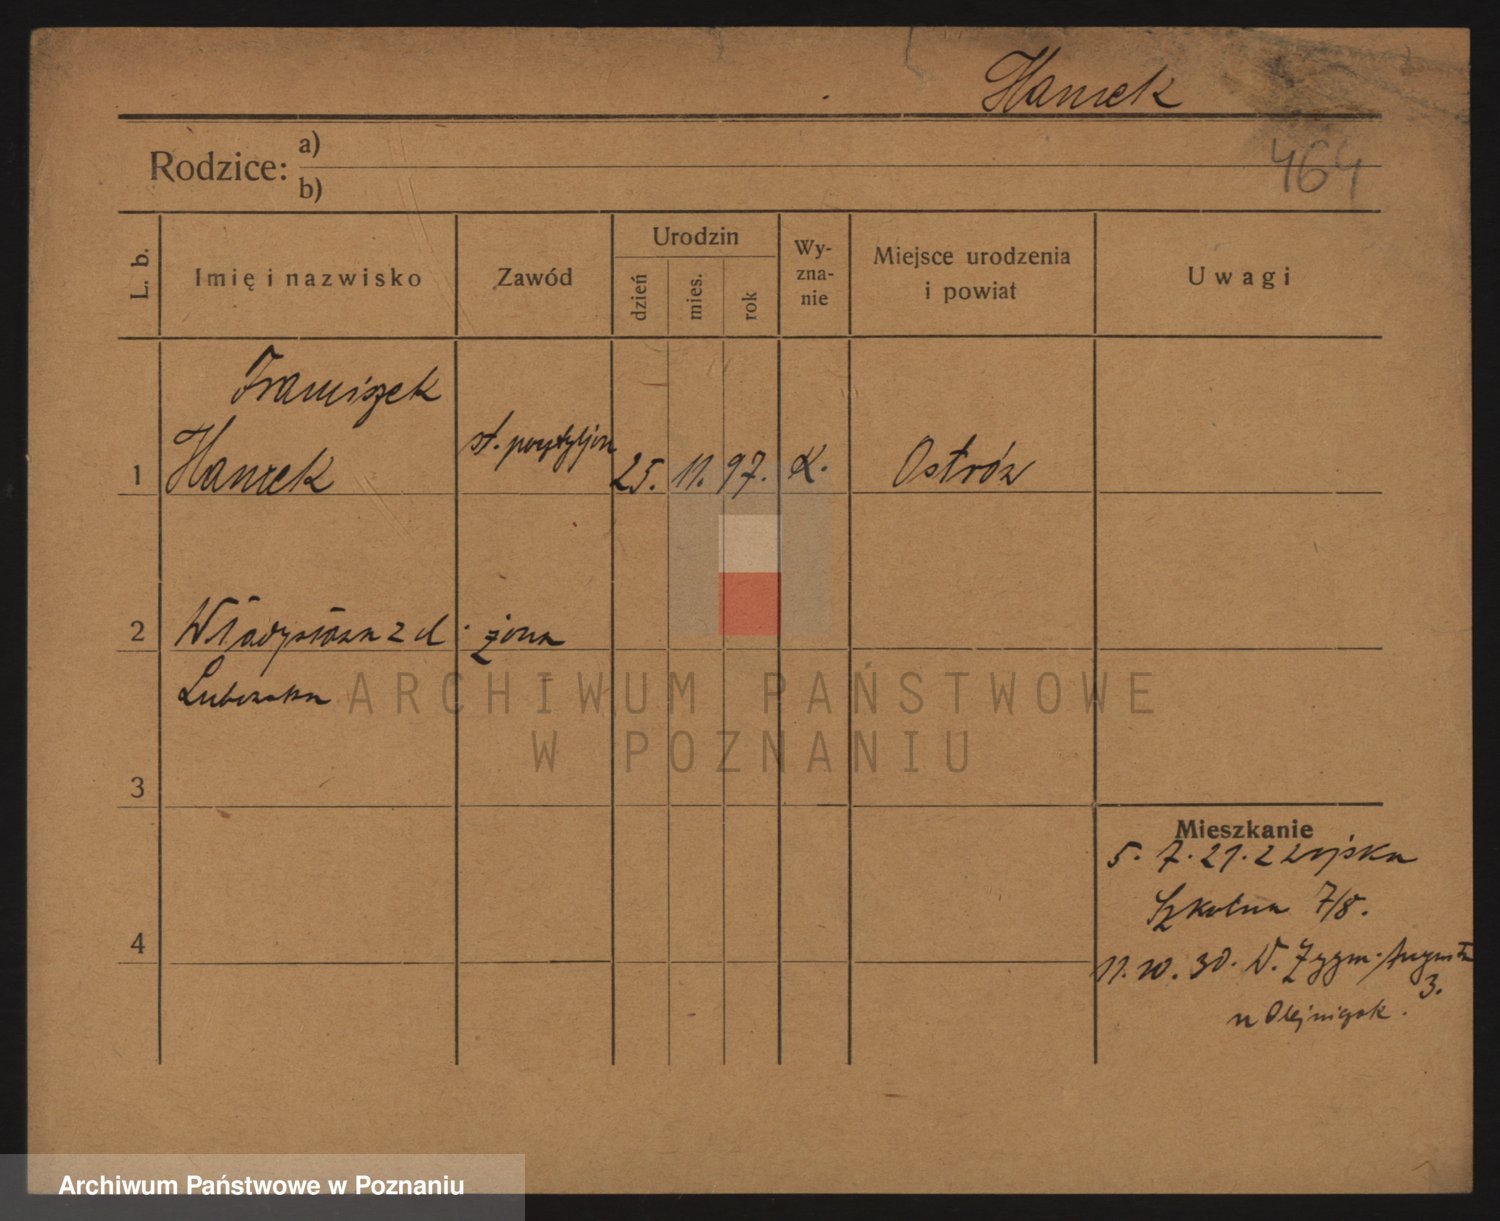 Hanrek
Rodzice: a)
b)
464
L. b.
Imię i nazwisko
Zawód
Urodzin
dzień
mies.
rok
Wy-
zna-
nie
Miejsce urodzenia
i powiat
Uwagi
Franciszek
1 Hanrek st. pocztyljon 25. 11. 97. K. Ostrów
2 Władysława z d. żona
3
4
Mieszkanie
5. 7. 21. z wojska
Szkolna 7/8.
11. 10. 30. W. Zygm. Augusta
3.
u Olejniczak.
ARCHIWUM PAŃSTWOWE
W POZNANIU
Archiwum Państwowe w Poznaniu